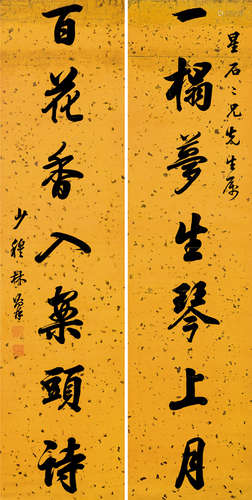 星石二兄先生属
一榻梦生琴上月
百花香入案頭诗
少穆林